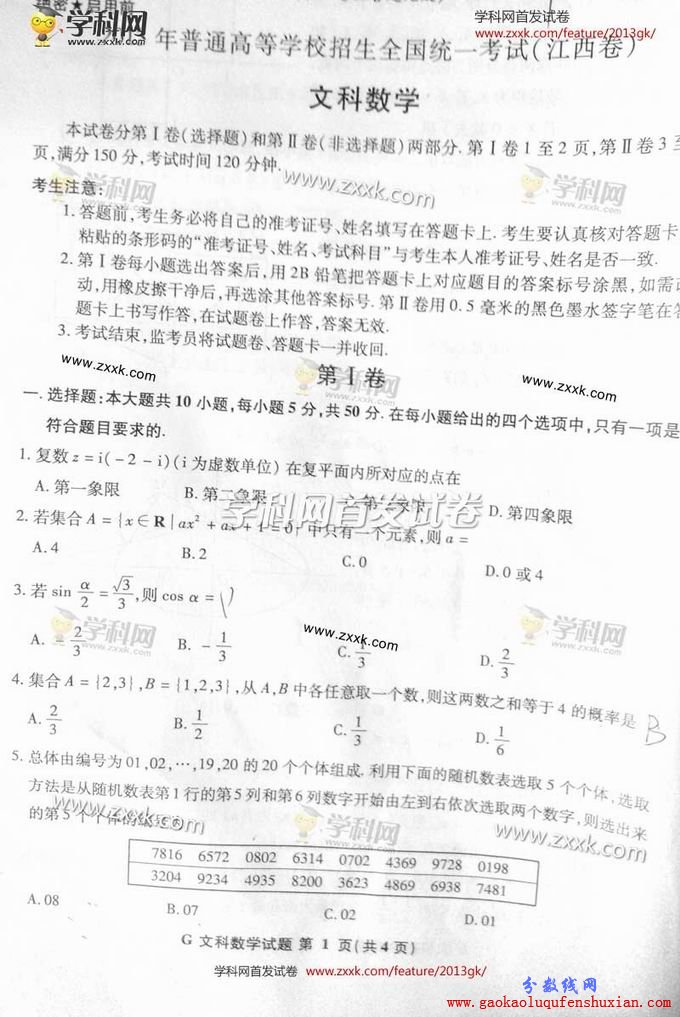 绝密★启用前
学科网
zxxk.com
学科网首发试卷
www.zxxk.com/feature/2013gk/
年普通高等学校招生全国统一考试(江西卷)
文科数学
本试卷分第Ⅰ卷(选择题)和第Ⅱ卷(非选择题)两部分.第Ⅰ卷1至2页,第Ⅱ卷3至
页,满分150分,考试时间120分钟.
www.zxxk.com
学科网
zxxk.com
考生注意:
1.答题前,考生务必将自己的准考证号、姓名填写在答题卡上.考生要认真核对答题卡
粘贴的条形码的“准考证号、姓名、考试科目”与考生本人准考证号、姓名是否一致.
2.第Ⅰ卷每小题选出答案后,用2B铅笔把答题卡上对应题目的答案标号涂黑,如需改
动,用橡皮擦干净后,再选涂其他答案标号.第Ⅱ卷用0.5毫米的黑色墨水签字笔在答
题卡上书写作答,在试题卷上作答,答案无效.
3.考试结束,监考员将试题卷、答题卡一并收回.
www.zxxk.com
第Ⅰ卷
学科网
www.zxxk.com
一.选择题:本大题共10小题,每小题5分,共50分.在每小题给出的四个选项中,只有一项是
符合题目要求的.
1.复数z=i(-2-i)(i为虚数单位)在复平面内所对应的点在
A.第一象限 B.第二象限 第三象限 D.第四象限
学科网首发试卷
2.若集合A={x∈R|ax²+ax+1=0}中只有一个元素,则a=
A.4 B.2 C.0 D.0或4
3.若sin α/2=√3/3,则cos α=
学科网
zxxk.com
www.zxxk.com
学科网
zxxk.com
A.-2/3 B.-1/3 C.1/3 D.2/3
4.集合A={2,3},B={1,2,3},从A,B中各任意取一个数,则这两数之和等于4的概率是 B
A.2/3 B.1/2 C.1/3 D.1/6
5.总体由编号为01,02,…,19,20的20个个体组成.利用下面的随机数表选取5个个体,选取
方法是从随机数表第1行的第5列和第6列数字开始由左到右依次选取两个数字,则选出来
的第5个个体的编号
www.zxxk.com
学科网
zxxk.com
www.zxxk.com
7816 6572 0802 6314 0702 4369 9728 0198
3204 9234 4935 8200 3623 4869 6938 7481
A.08 B.07 C.02 D.01
G 文科数学试题 第1页(共4页)
学科网首发试卷 www.zxxk.com/feature/2013gk/
分数线网
www.gaokaoluqufenshuxian.com